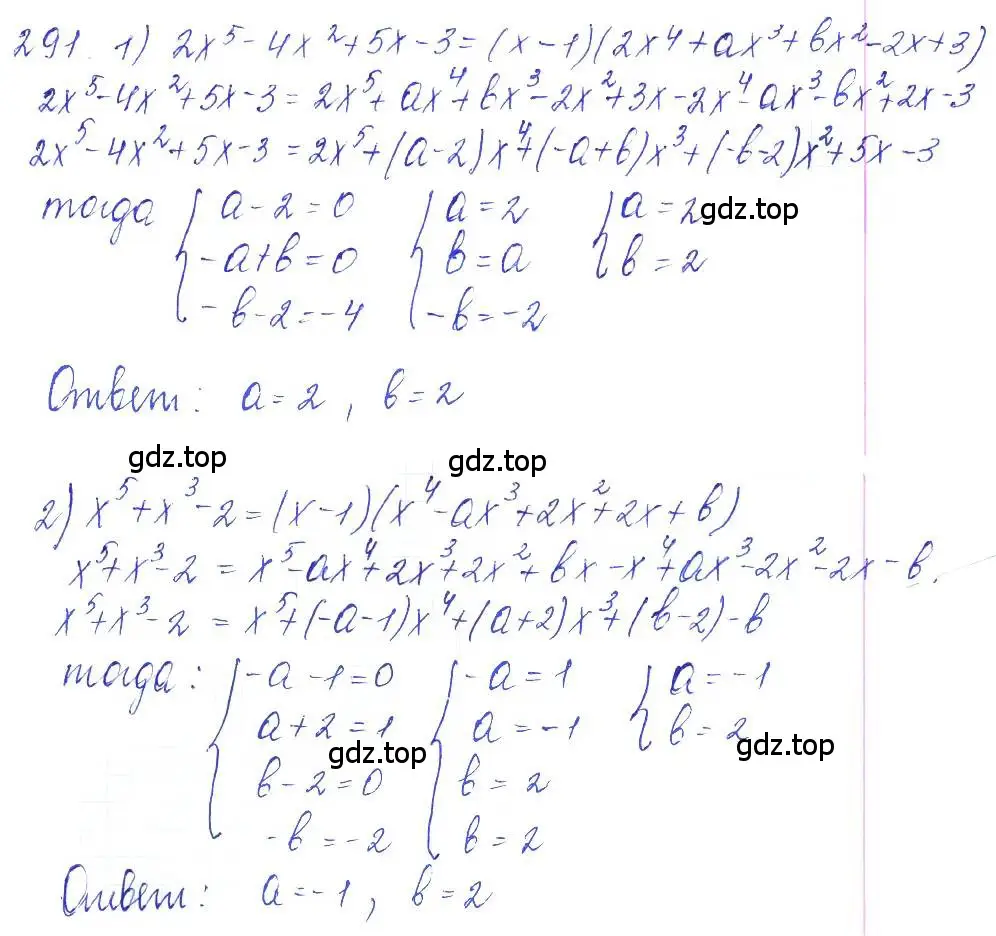 291. 1) 2x⁵ - 4x² + 5x - 3 = (x - 1)(2x⁴ + ax³ + bx² - 2x + 3)
2x⁵ - 4x² + 5x - 3 = 2x⁵ + ax⁴ + bx³ - 2x² + 3x - 2x⁴ - ax³ - bx² + 2x - 3
2x⁵ - 4x² + 5x - 3 = 2x⁵ + (a - 2)x⁴ + (-a + b)x³ + (-b - 2)x² + 5x - 3
тогда { a - 2 = 0 { a = 2 { a = 2 gdz.top
-a + b = 0 b = a b = 2
-b - 2 = -4 -b = -2
Ответ: a = 2, b = 2
gdz.top gdz.top
2) x⁵ + x³ - 2 = (x - 1)(x⁴ - ax³ + 2x² + 2x + b)
x⁵ + x³ - 2 = x⁵ - ax⁴ + 2x³ + 2x² + bx - x⁴ + ax³ - 2x² - 2x - b.
x⁵ + x³ - 2 = x⁵ + (-a - 1)x⁴ + (a + 2)x³ + (b - 2) - b
тогда: { -a - 1 = 0 { -a = 1 { a = -1
a + 2 = 1 a = -1 b = 2
gdz.top gdz.top
b - 2 = 0 b = 2
-b = -2 b = 2
Ответ: a = -1, b = 2